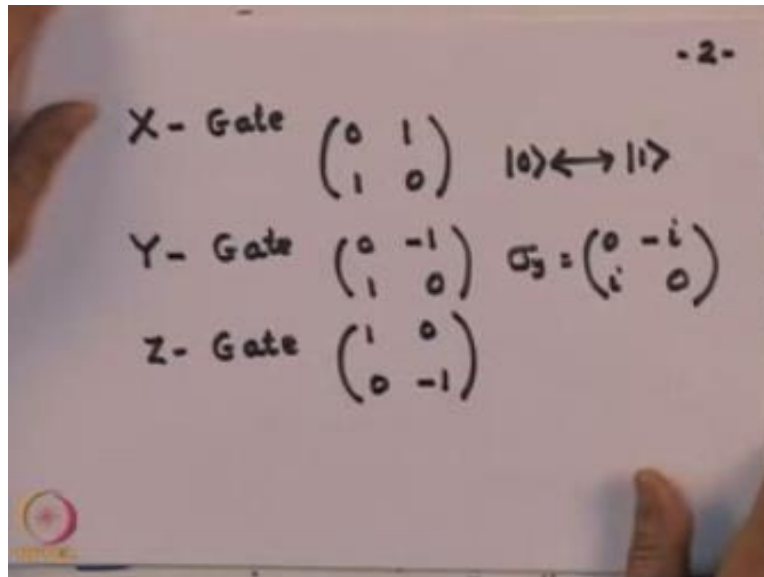 -2-
X- Gate (0 1
1 0) |0>⟷|1>
Y- Gate (0 -1
1 0) σy = (0 -i
i 0)
Z- Gate (1 0
0 -1)